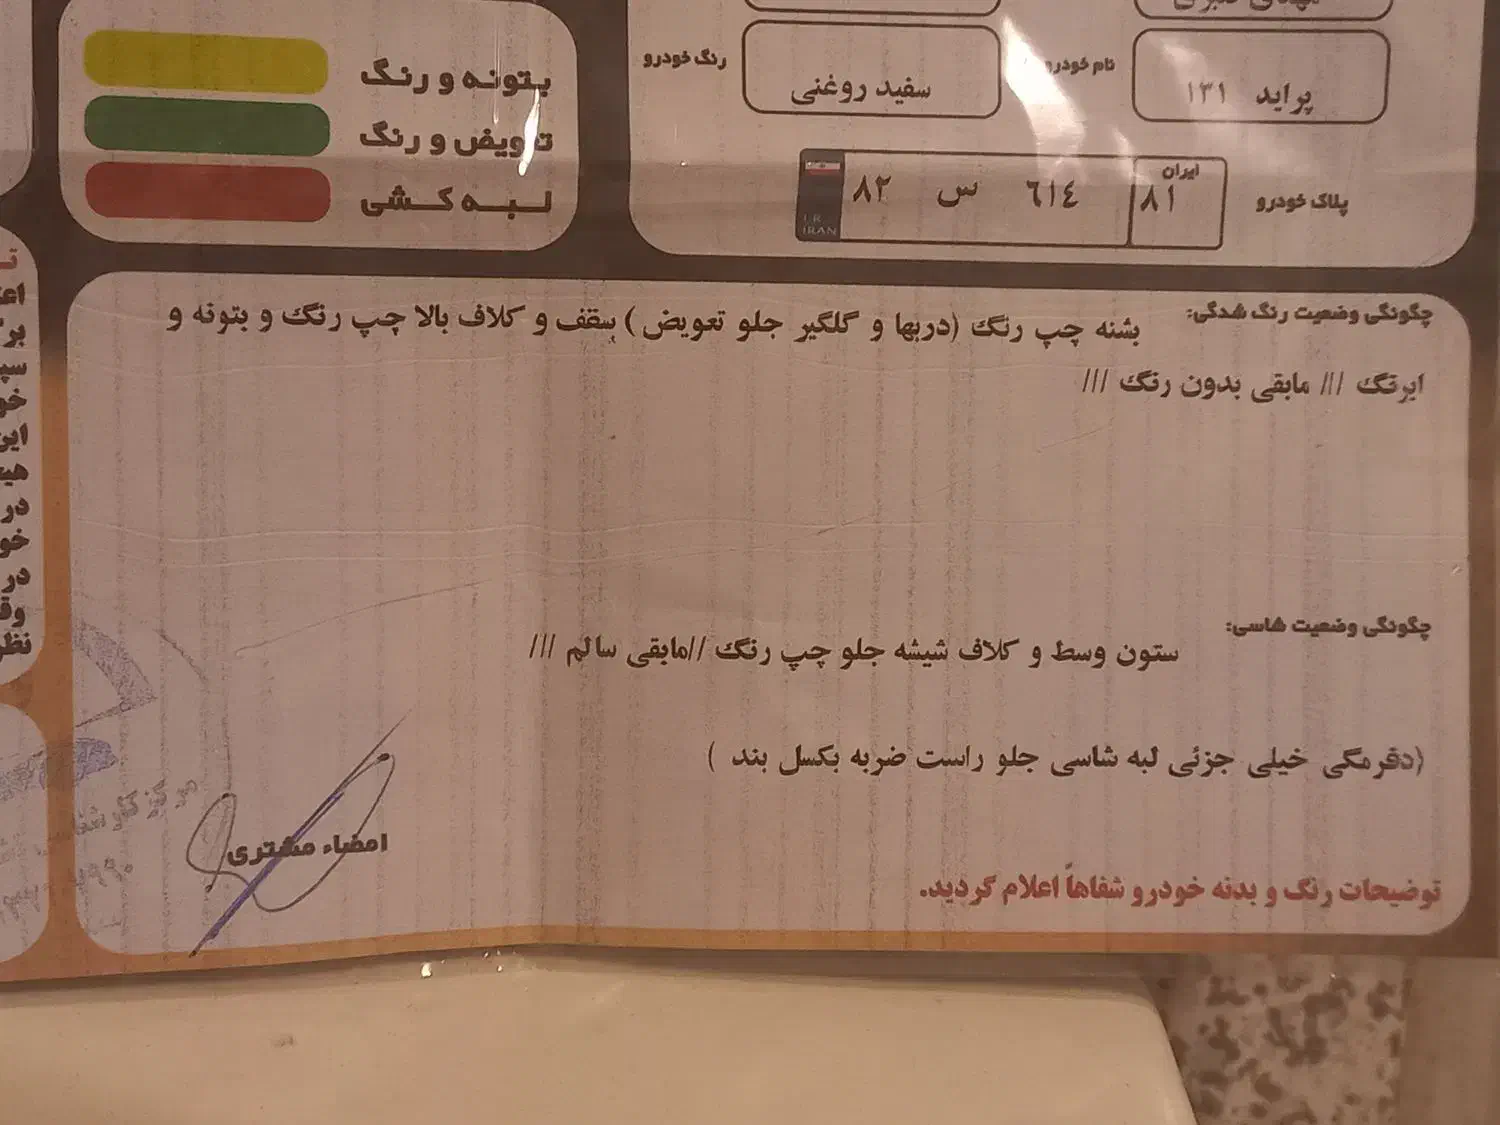 بتونه و رنگ
تعویض و رنگ
لبه کشی
نام خودرو
پراید ۱۳۱
رنگ خودرو
سفید روغنی
پلاک خودرو
ایران
۸۲ س ۶۱۴ ۸۱
I.R.
IRAN
چگونگی وضعیت رنگ شدگی:
بشنه چپ رنگ (دربها و گلگیر جلو تعویض ) سقف و کلاف بالا چپ رنگ و بتونه و
ابرنگ /// مابقی بدون رنگ ///
چگونگی وضعیت شاسی:
ستون وسط و کلاف شیشه جلو چپ رنگ //مابقی سالم ///
(دفرمگی خیلی جزئی لبه شاسی جلو راست ضربه بکسل بند )
امضاء مشتری
توضیحات رنگ و بدنه خودرو شفاهاً اعلام گردید.
در
در
نظر